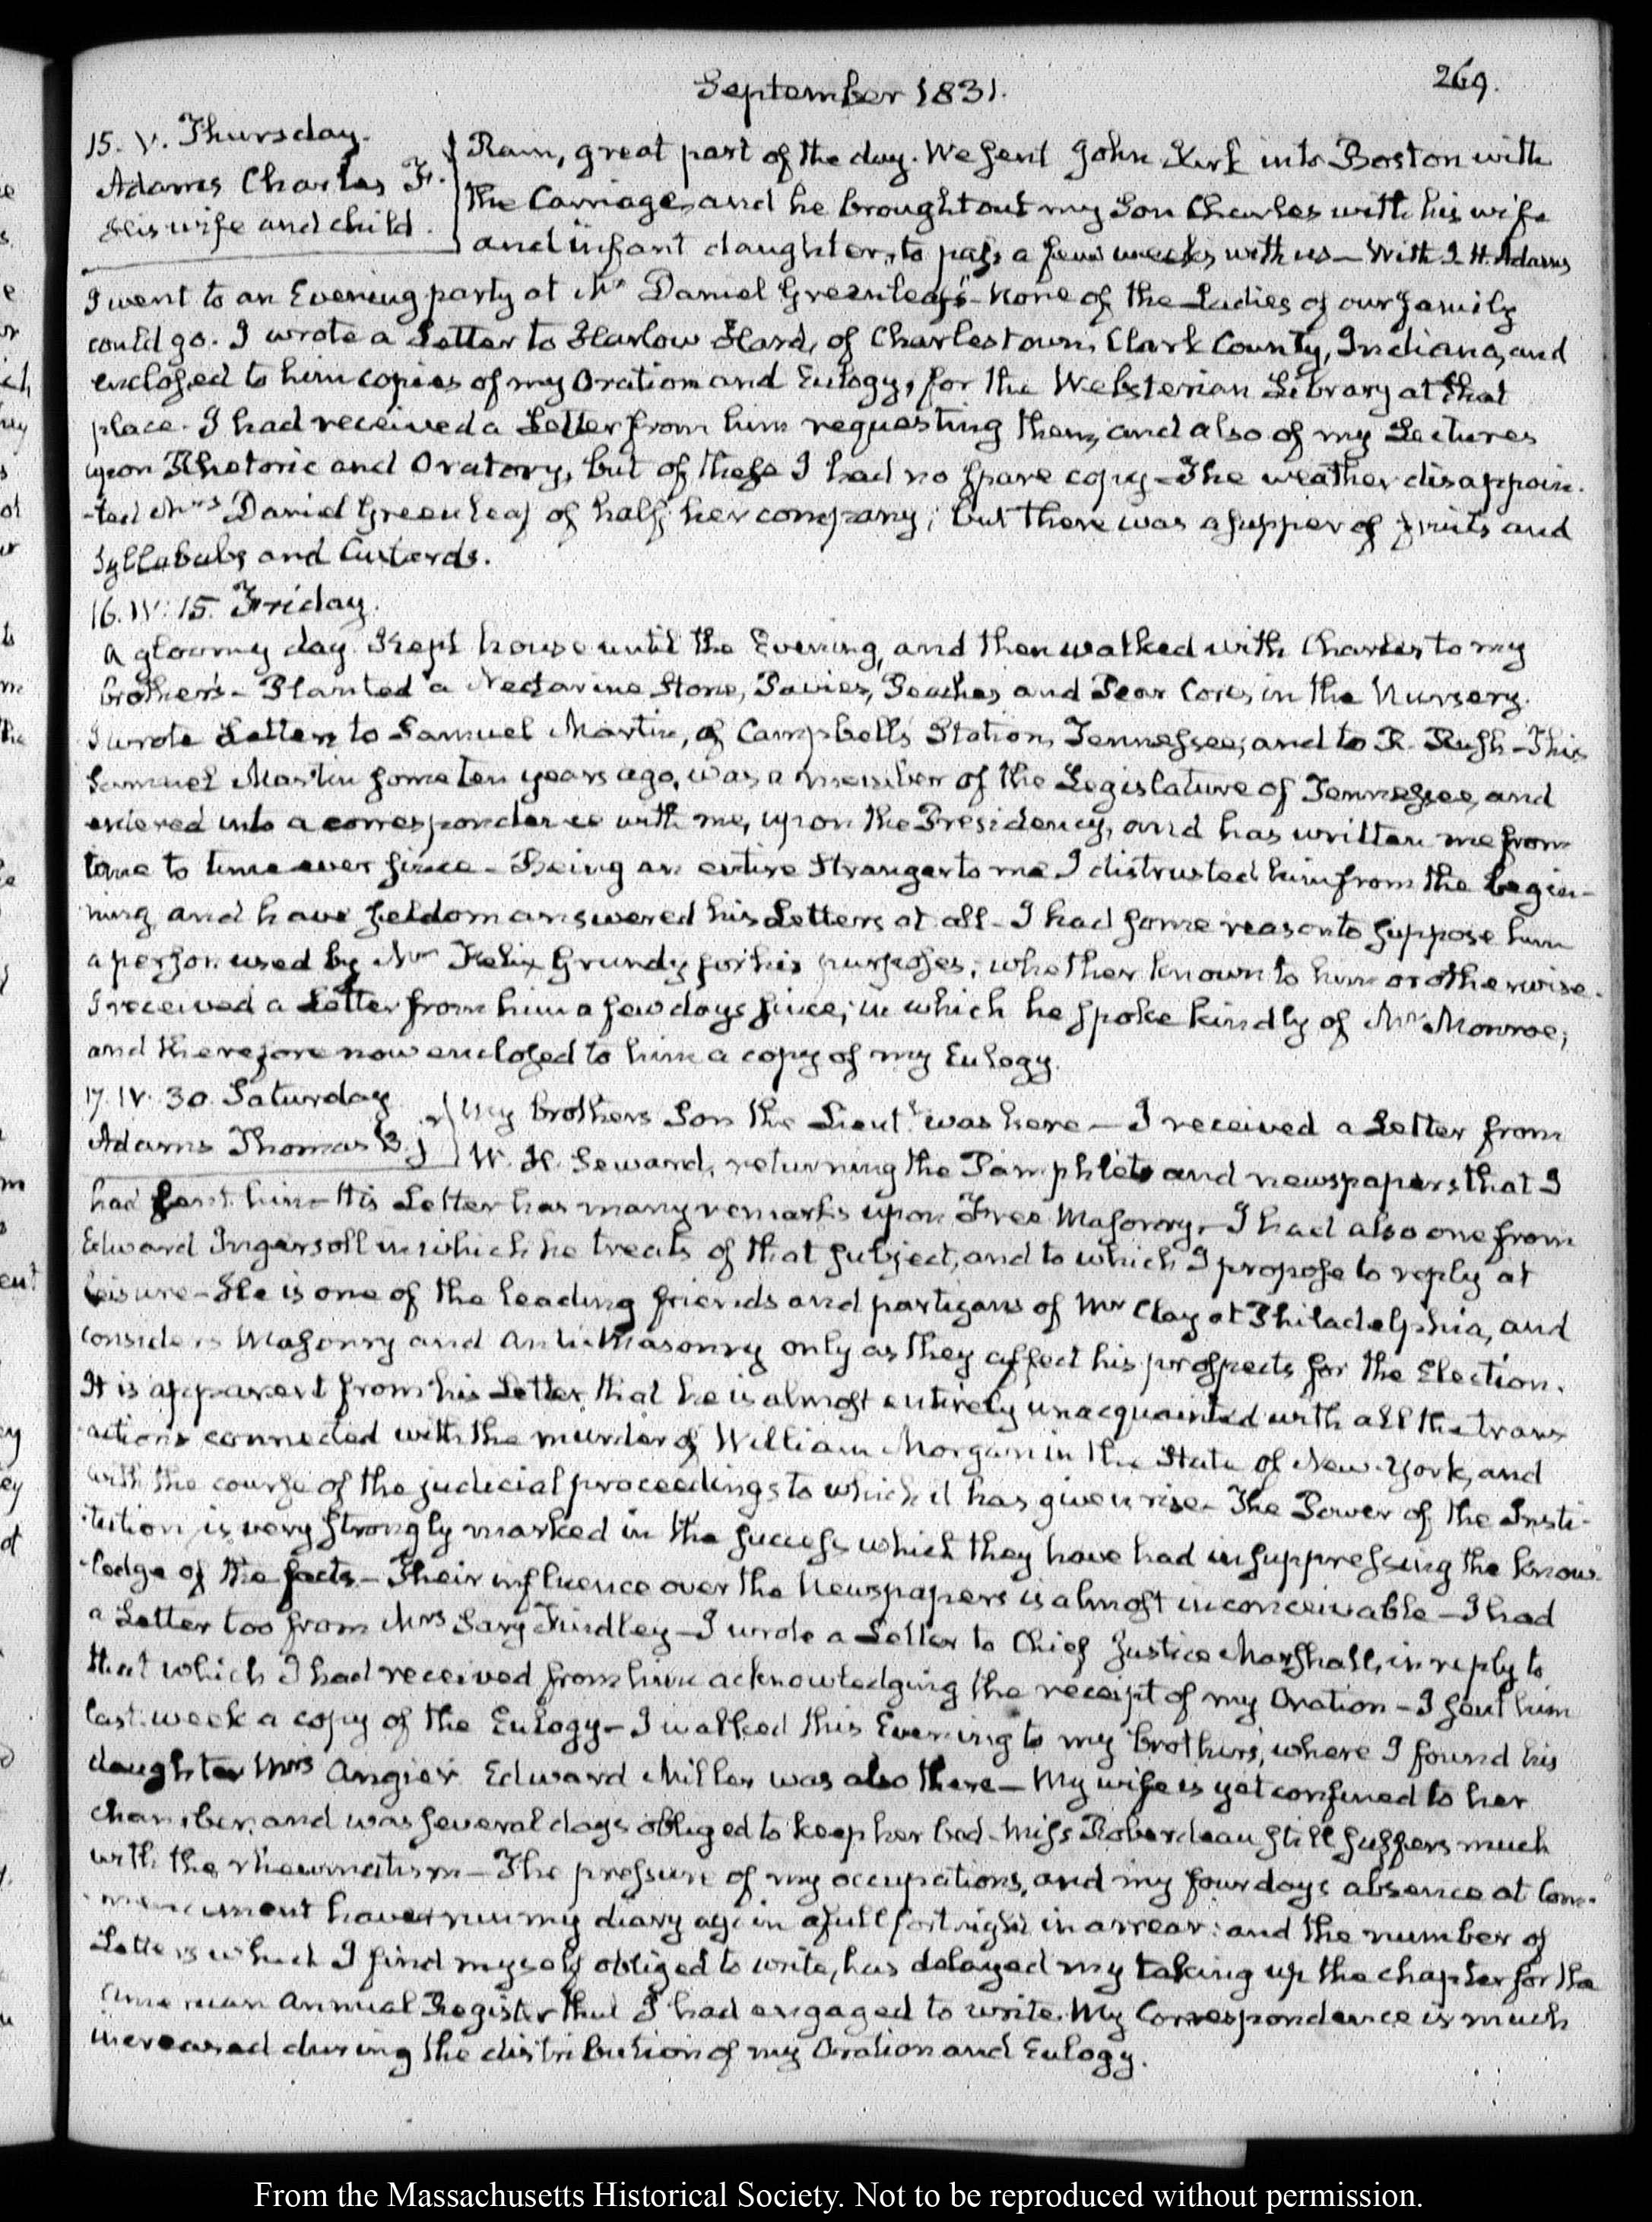 September 1831.
269.
15. V. Thursday.
Adams Charles F.
His wife and child.
Rain, great part of the day. We sent John Kirk into Boston with
the Carriage, and he brought out my Son Charles with his wife
and infant daughter, to pass a few weeks with us — With I. H. Adams
I went to an Evening party at Mr Daniel Greenleaf's — None of the Ladies of our family
could go. I wrote a Letter to Harlow Hard, of Charlestown, Clark County, Indiana, and
enclosed to him copies of my Oration and Eulogy, for the Websterian Library at that
place. I had received a Letter from him requesting them, and also of my Lectures
upon Rhetoric and Oratory, but of these I had no spare copy — The weather disappoin-
-ted Mrs Daniel Greenleaf of half her company; but there was a supper of fruits and
Syllabubs and Custards.
16. IV: 15. Friday.
A gloomy day. Kept house until the Evening, and then walked with Charles to my
brother's — Planted a Nectarine Stone, Pavies, Peaches and Pear Cores, in the Nursery.
I wrote Letters to Samuel Martin, of Campbells Station, Tennessee; and to R. Rush — This
Samuel Martin some ten years ago, was a member of the Legislature of Tennessee, and
entered into a correspondence with me, upon the Presidency, and has written me from
time to time ever since — Being an entire Stranger to me I distrusted him from the begin-
ning, and have seldom answered his Letters at all — I had some reason to suppose him
a person used by Mr Felix Grundy for his purposes; whether known to him or otherwise.
I received a Letter from him a few days since; in which he spoke kindly of Mr Monroe;
and therefore now enclosed to him a copy of my Eulogy.
17. IV. 30. Saturday
Adams Thomas B. J
My brothers Son the Lieut. was here — I received a Letter from
W. H. Seward, returning the Pamphlets and newspapers that I
had sent him — His Letter has many remarks upon Free Masonry — I had also one from
Edward Ingersoll in which he treats of that subject, and to which I propose to reply at
leisure — He is one of the leading friends and partizans of Mr Clay at Philadelphia, and
considers Masonry and Anti-Masonry only as they affect his prospects for the Election.
It is apparent from his Letter that he is almost entirely unacquainted with all the trans
actions connected with the murder of William Morgan in the State of New-York, and
with the course of the judicial proceedings to which it has given rise — The Power of the Insti-
tution, is very strongly marked in the success which they have had in suppressing the know-
-ledge of the facts — Their influence over the Newspapers is almost inconceivable — I had
a Letter too from Mrs Sary Findley — I wrote a Letter to Chief Justice Marshall, in reply to
that which I had received from him acknowledging the receipt of my Oration — I sent him
last week a copy of the Eulogy — I walked this Evening to my brother's, where I found his
daughter Mrs Angier. Edward Miller was also there — My wife is yet confined to her
chamber, and was several days obliged to keep her bed — Miss Roberdeau still suffers much
with the rheumatism — The pressure of my occupations, and my four days absence at Com-
mencement have run my diary again a full fortnight in arrear: and the number of
Letters which I find myself obliged to write, has delayed my taking up the chapter for the
American Annual Register that I had engaged to write. My Correspondence is much
increased during the distribution of my Oration and Eulogy.
From the Massachusetts Historical Society. Not to be reproduced without permission.